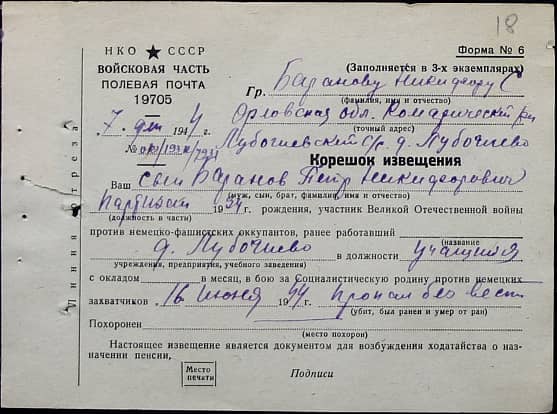 18
НКО ★ СССР
Форма № 6
ВОЙСКОВАЯ ЧАСТЬ
(Заполняется в 3-х экземплярах)
ПОЛЕВАЯ ПОЧТА
Гр. Баранову Никифору С
19705
(фамилия, имя и отчество)
7 194 г. Орловская обл. Комарический
(точный адрес)
№ Лубочиевский с/с. д. Лубочиево
Корешок извещения
Ваш сын Баранов Петр Никифорович
(муж, сын, брат, фамилия, имя и отчество)
партизан 19 г. рождения, участник Великой Отечественной войны
(должность в части)
против немецко-фашистских оккупантов, ранее работавший
д. Лубочиево в должности учащийся
(название
учреждения, предприятия, учебного заведения)
с окладом в месяц, в бою за Социалистическую родину против немецких
захватчиков 16 июня 1944 г. пропал без вест
(убит, был ранен и умер от ран)
Похоронен
(место похорон)
Настоящее извещение является документом для возбуждения ходатайства о на-
значении пенсии,
Место
печати
Подписи
Линия отреза